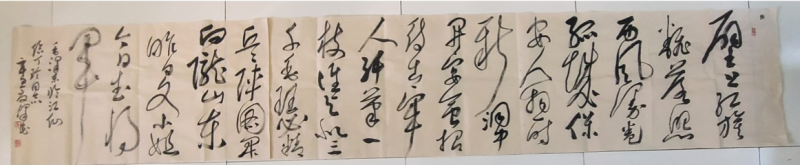 壁上红旗
飘落照
西风漫卷
孤城保
安人物一时
新洞中
开宴会招
待出牢
人纤笔一
枝谁与似三
千毛瑟精
兵阵图开
向陇山东
昨日文小姐
今日武将
军
毛泽东临江仙
给丁玲同志